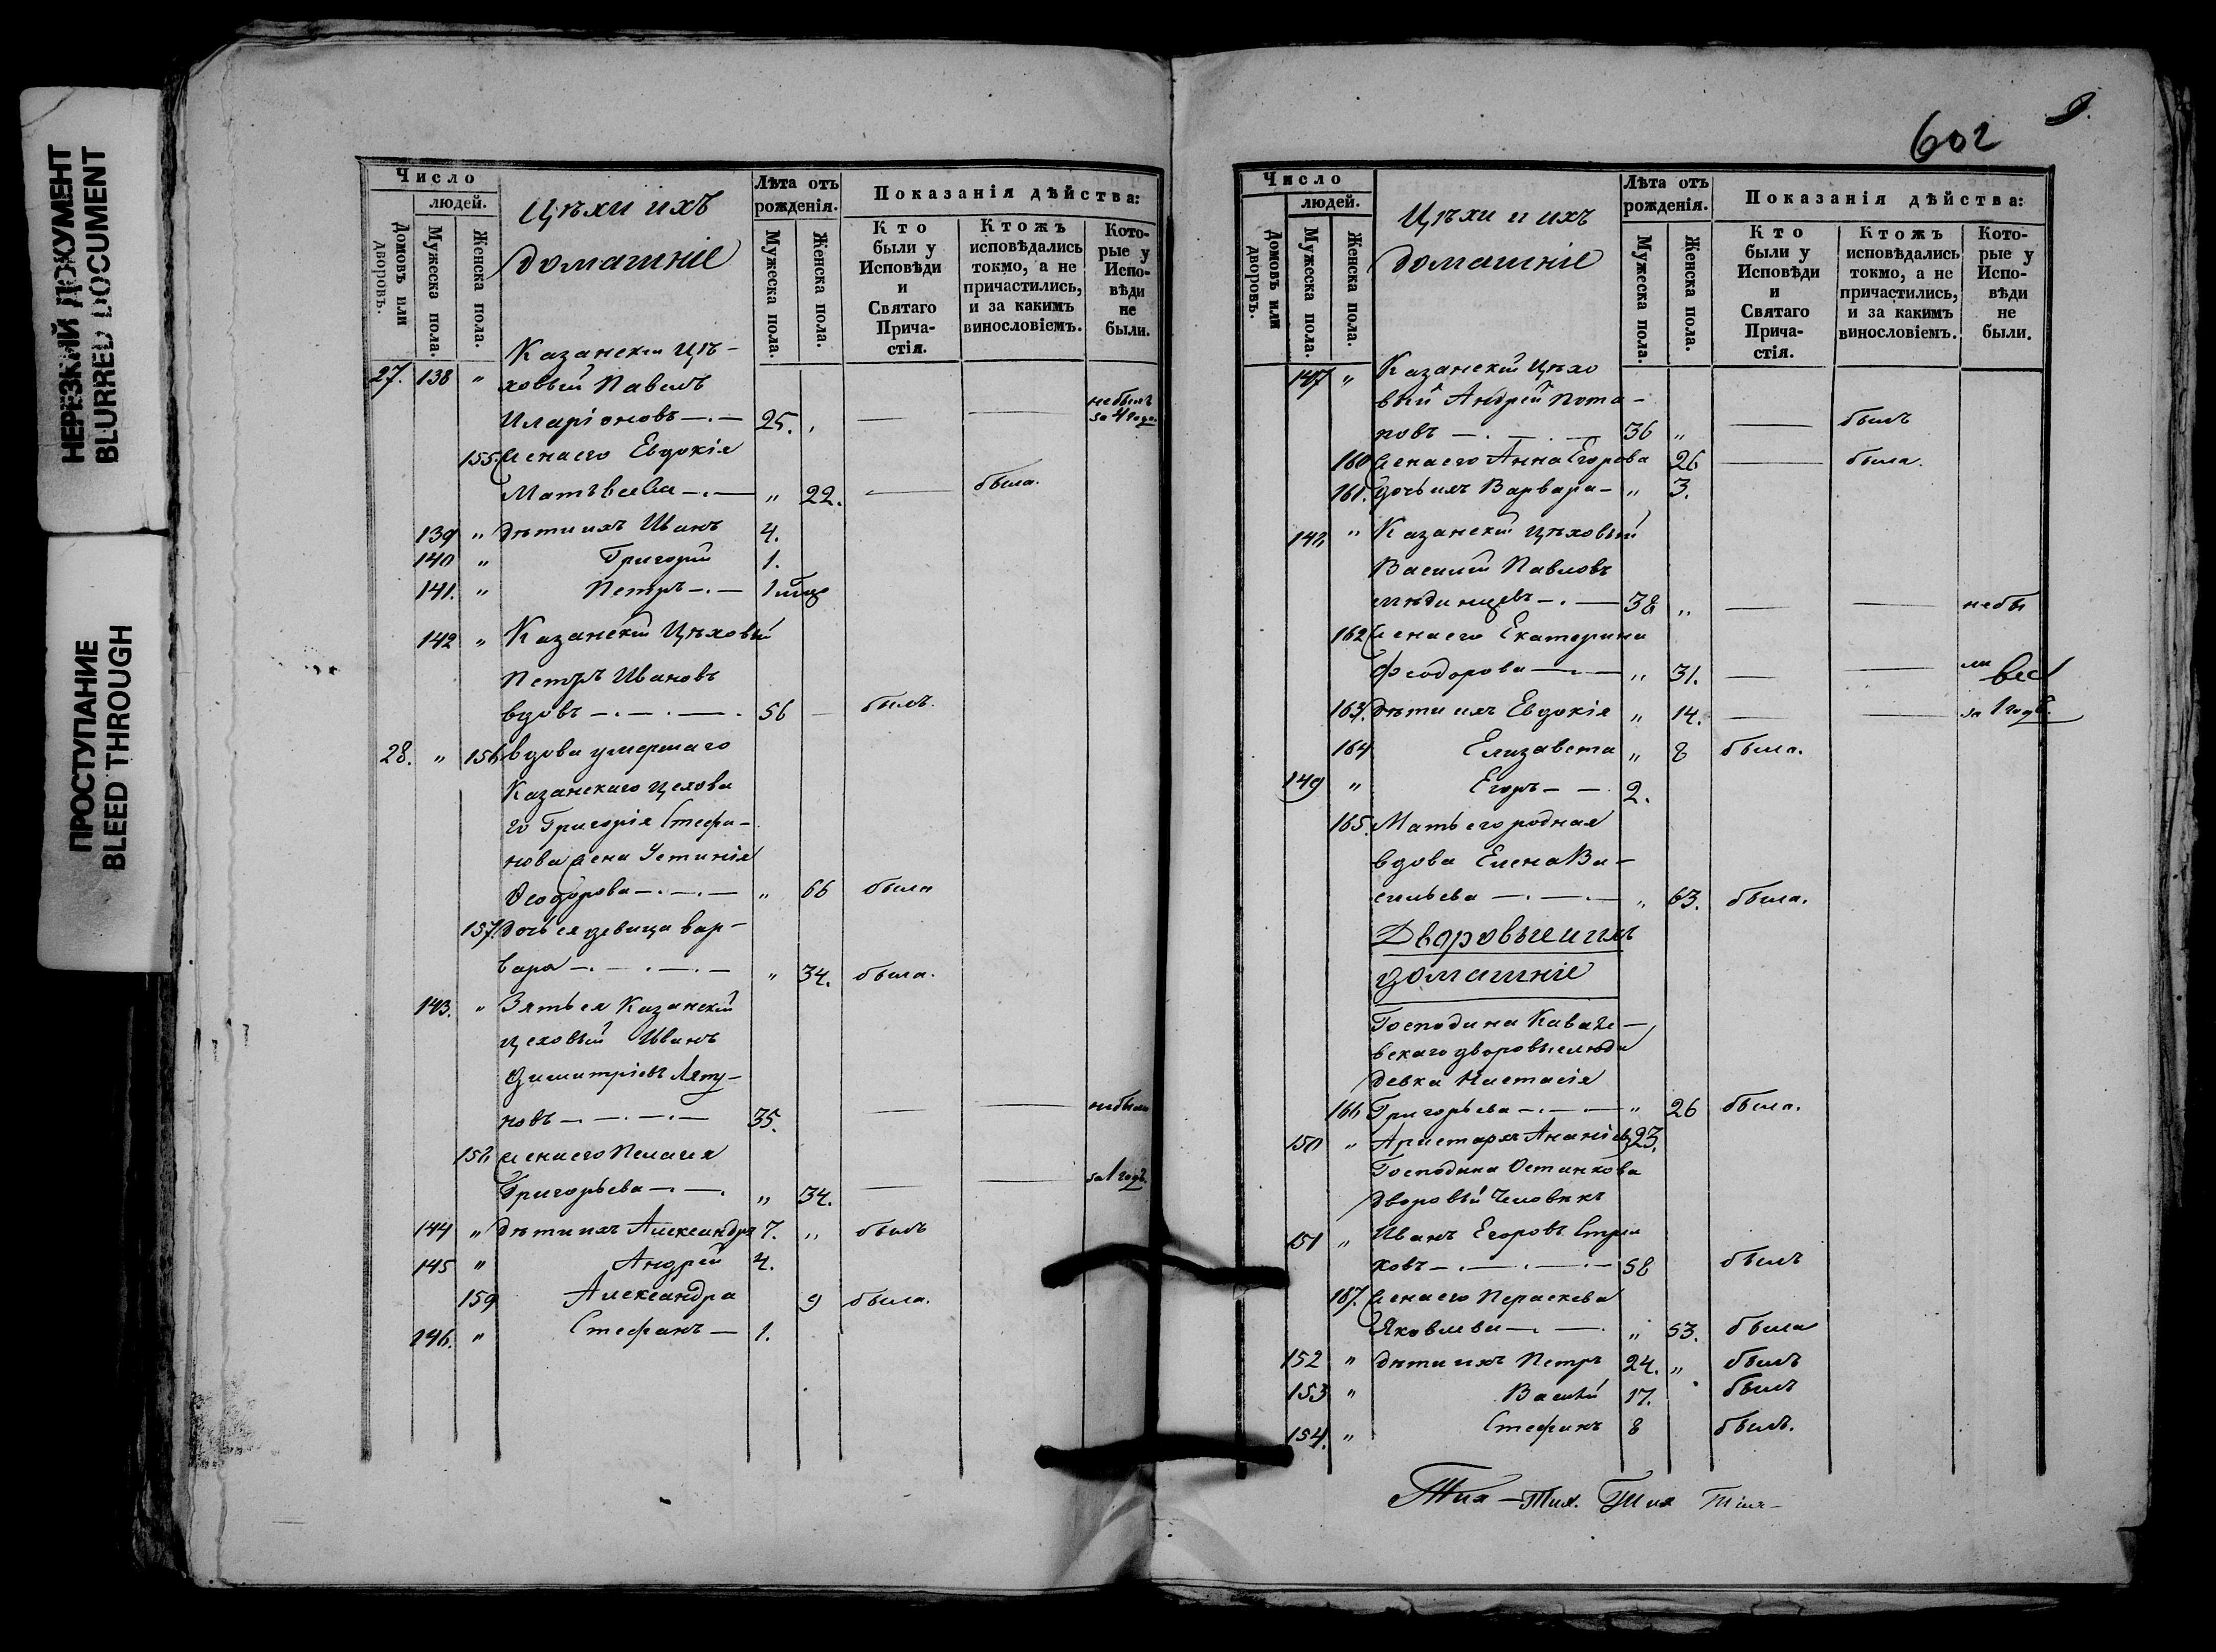 НЕРЕЗКИЙ ДОКУМЕНТ
BLURRED DOCUMENT
ПРОСТУПАНИЕ
BLEED THROUGH
Число
людей.
Домовъ или дворовъ.
Мужеска пола.
Женска пола.
Цѣхи ихъ
домашніе
Лѣта отъ рожденія.
Мужеска пола.
Женска пола.
Показанія дѣйства:
Кто были у Исповѣди и Святаго Прича-стія.
Ктожъ исповѣдались токмо, а не причастились, и за какимъ винословіемъ.
Кото-рые у Испо-вѣди не были.
Казанскій Цѣ-
27. 138 " ховый Павелъ
Иларіоновъ — . — 25. , — — небылъ за 4 года
155. Жена его Евдокія
Матвѣева — . — " 22. — была.
139 " Дѣти ихъ Иванъ 4.
140 " Григорій 1.
141. " Петръ — . — 1
142 " Казанскій Цѣховый
Петръ Ивановъ
вдовъ — . — . — . 56 — былъ.
28. " 156 Вдова умершаго
Казанскаго цехова
го Григорія Стефа-
нова жена Устинія
Ѳеодорова — . — . — " 66 была
157. Дочь ея девица Вар-
вара — . — . — . — " 34. была.
143. " Зять ея Казанскій
цеховый Иванъ
Димитріевъ Ляпу-
новъ — . — . — . — 35. — — небыли
158 Жена его Пелагея
Григорьева — . — . " 34. — — за 1 годъ.
144 " Дѣти ихъ Александръ 7. " былъ
145 " Андрей 4.
159 Александра 9 была.
146. " Стефанъ — 1.
602
9.
Число
людей.
Домовъ или дворовъ.
Мужеска пола.
Женска пола.
Цѣхи и ихъ
домашніе
Лѣта отъ рожденія.
Мужеска пола.
Женска пола.
Показанія дѣйства:
Кто были у Исповѣди и Святаго Прича-стія.
Ктожъ исповѣдались токмо, а не причастились, и за какимъ винословіемъ.
Кото-рые у Испо-вѣди не были.
147 " Казанскій Цѣхо
вый Андрей Пота-
повъ — . — . — 36 " — былъ
160 Жена его Анна Егорова 26 — была.
161. дочь ихъ Варвара — " 3.
148 " Казанскій цѣховый
Василій Павловъ
— . — 38 " — — небы
162 Жена его Екатерина
Ѳеодорова — . — " 31. — — ли
163. Дѣти ихъ Евдокія " 14. — — за 1 годъ.
164 Елизавета " 8 была.
149 " Егоръ — — 2.
165. Мать его родная
вдова Елена Ва-
сильева — . — . — " 63. была.
Дворовые и ихъ
домашніе
Господина
дворовые люди
девка Настасія
166 Григорьева — . — . — " 26 была.
150 " Аристархъ Ананіевъ 23.
Господина Остинкова
Дворовый Человѣкъ
151 " Иванъ Егоровъ
ковъ — . — . — . — 58 былъ
167. Жена его Параскева
Яковлева — . — . " 53. была
152 " Дѣти ихъ Петръ 24. " былъ
153 " Василій 17. былъ
154. " Стефанъ 8 былъ.